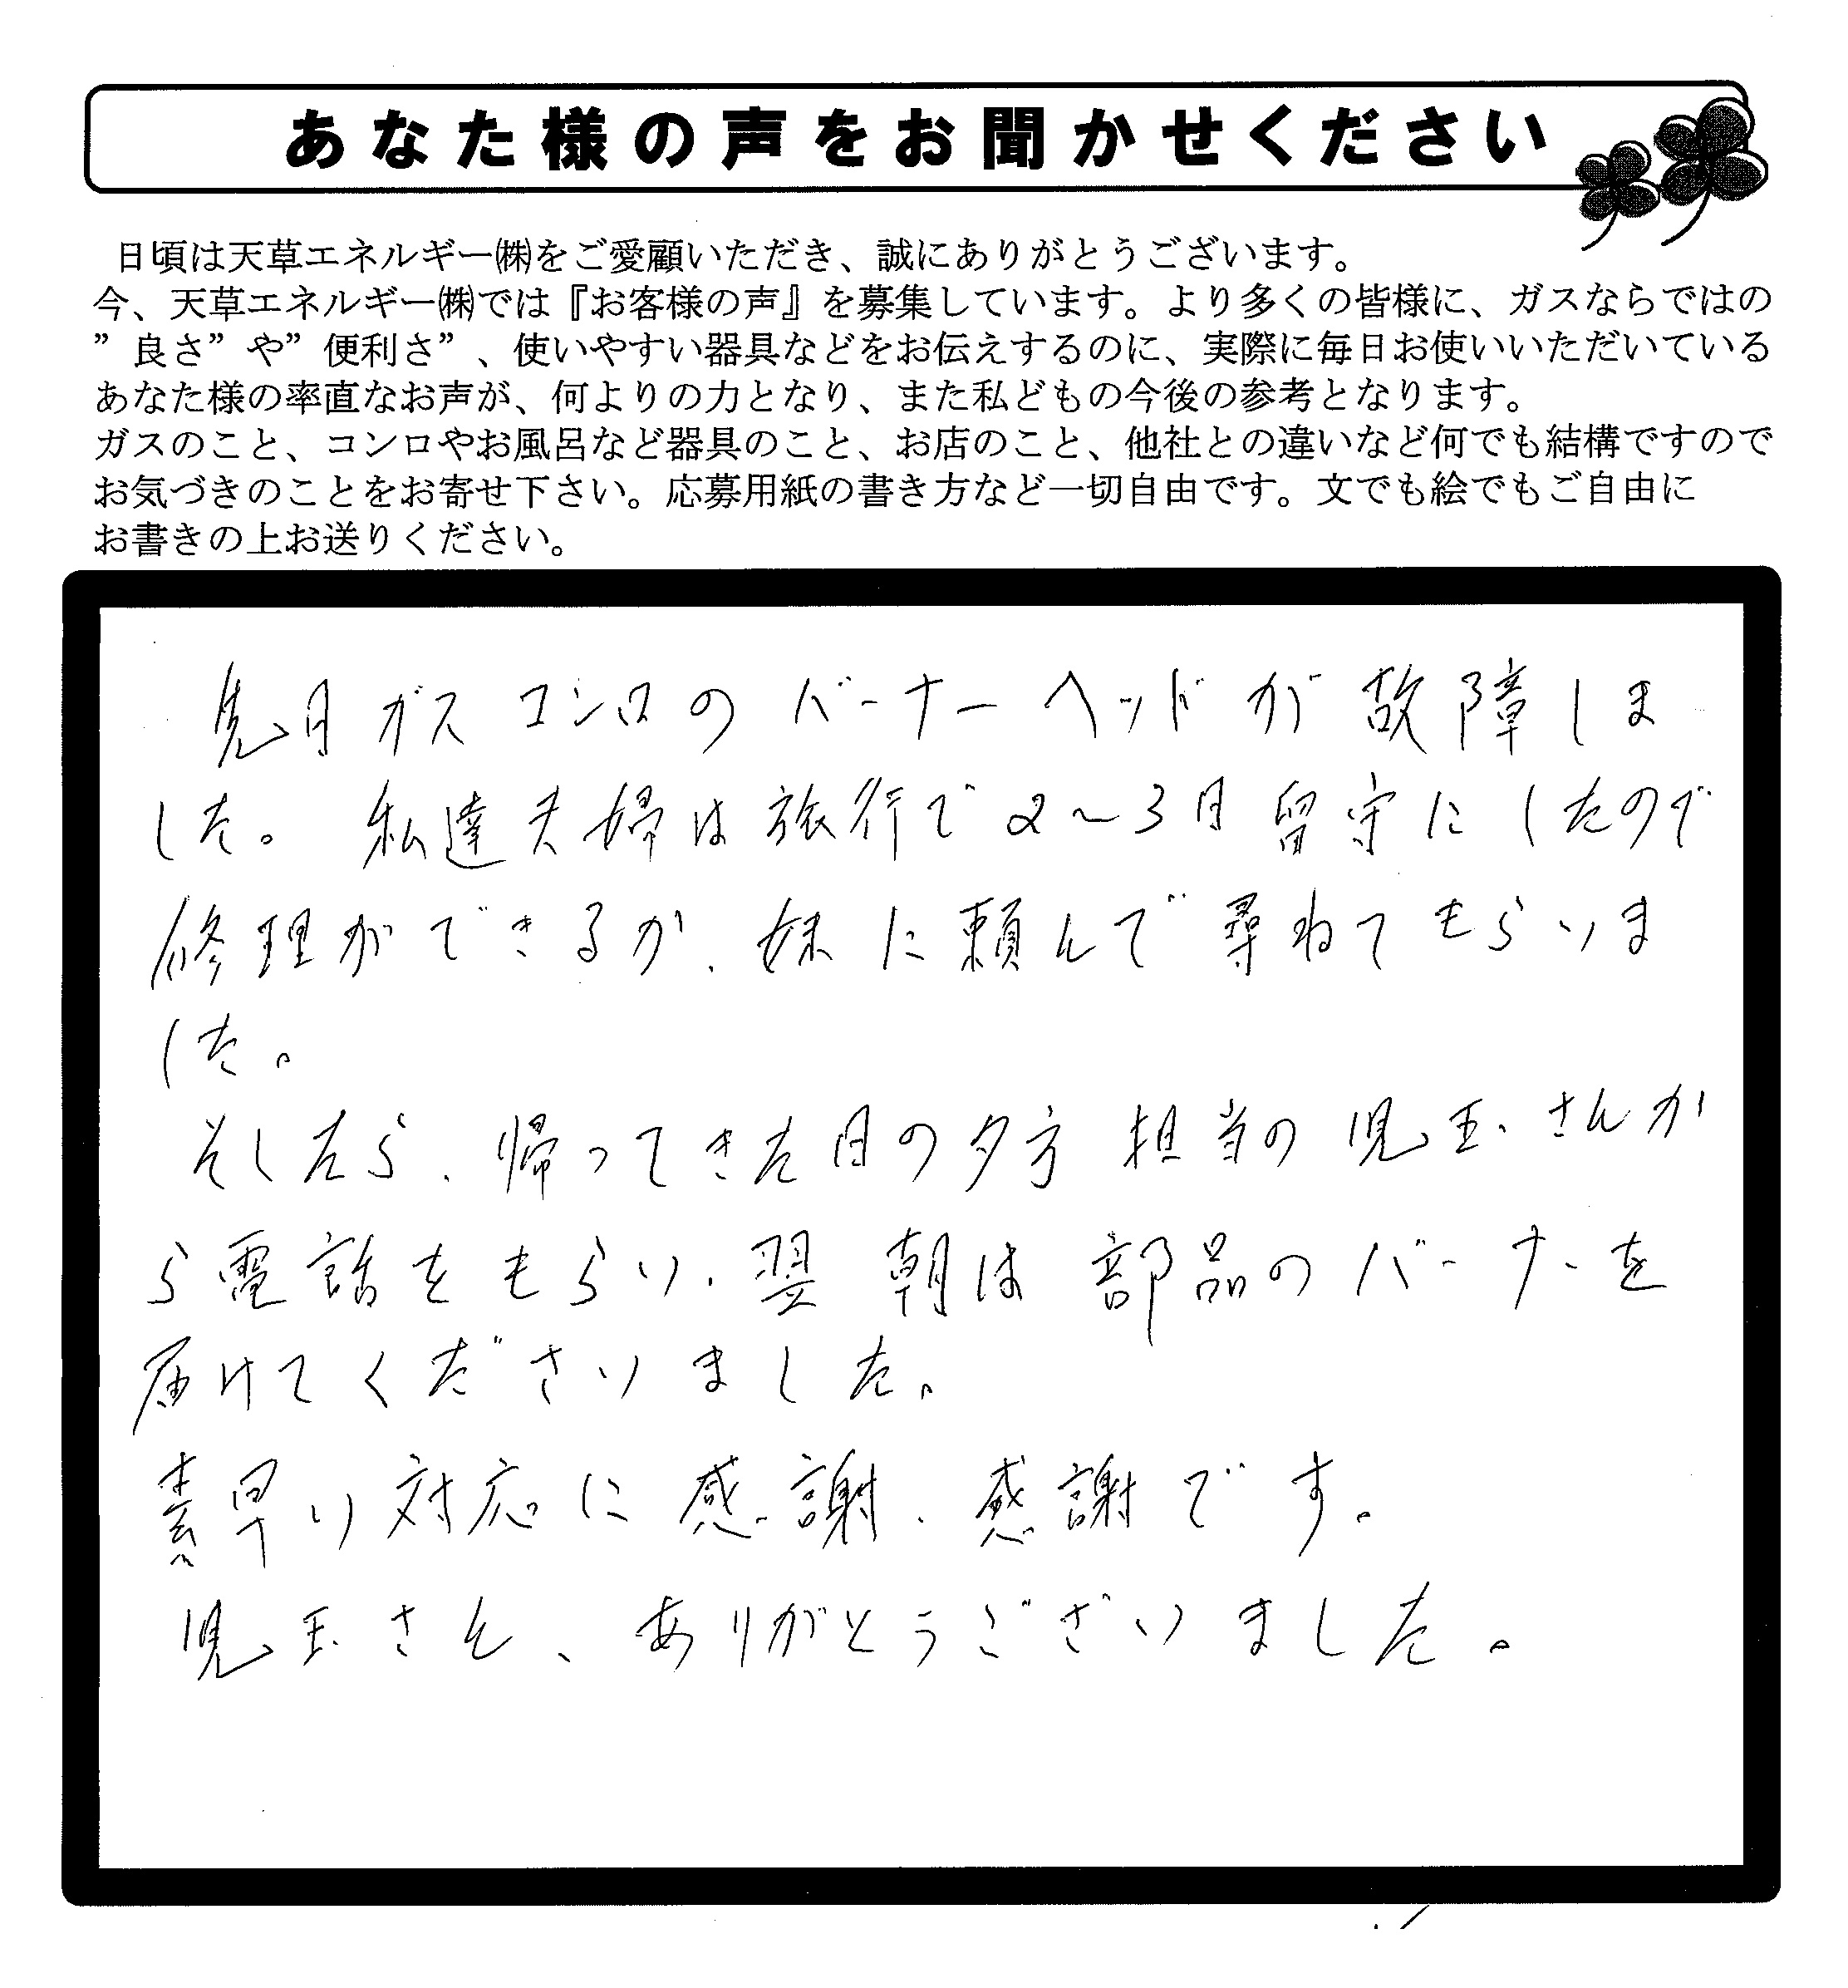 あなた様の声をお聞かせください
日頃は天草エネルギー㈱をご愛顧いただき、誠にありがとうございます。
今、天草エネルギー㈱では『お客様の声』を募集しています。より多くの皆様に、ガスならではの
”良さ”や”便利さ”、使いやすい器具などをお伝えするのに、実際に毎日お使いいただいている
あなた様の率直なお声が、何よりの力となり、また私どもの今後の参考となります。
ガスのこと、コンロやお風呂など器具のこと、お店のこと、他社との違いなど何でも結構ですので
お気づきのことをお寄せ下さい。応募用紙の書き方など一切自由です。文でも絵でもご自由に
お書きの上お送りください。
先月ガスコンロのバーナーヘッドが故障しま
した。私達夫婦は旅行で2〜3日留守にしたので
修理ができるか、妹に頼んで尋ねてもらいま
した。
そしたら、帰ってきた日の夕方担当の児玉さんか
ら電話をもらい、翌朝は部品のバーナーを
届けてくださいました。
素早い対応に感謝、感謝です。
児玉さん、ありがとうございました。